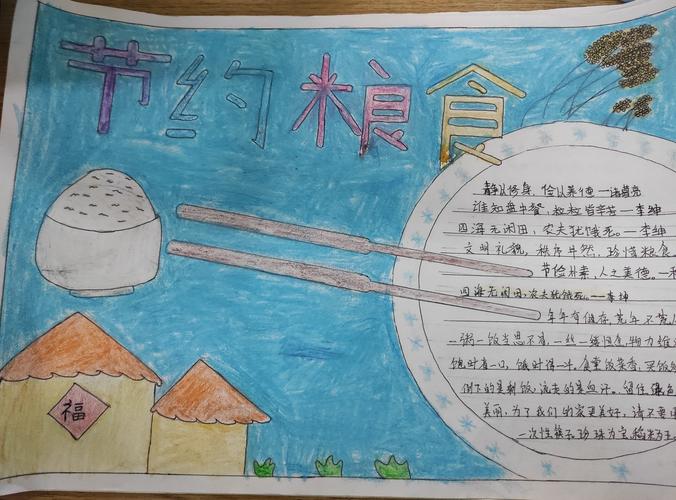 节约粮食
静以修身，俭以养德 — 诸葛亮
谁知盘中餐，粒粒皆辛苦 — 李绅
四海无闲田，农夫犹饿死。— 李绅
文明礼貌，秩序井然，珍惜粮食
节俭朴素，人之美德。—
四海无闲田，农夫犹饿死。— 李坤
年年有储存，荒年不荒
一粥一饭当思不易，一丝一缕恒念物力维
饱时省一口，饿时得一斗，食堂饭菜香，买饭
倒下的是剩饭，流走的是血汗。留住绿色
美丽，为了我们的家更美好，请不要
一次性筷子，珍珠为宝，稻米为王
福